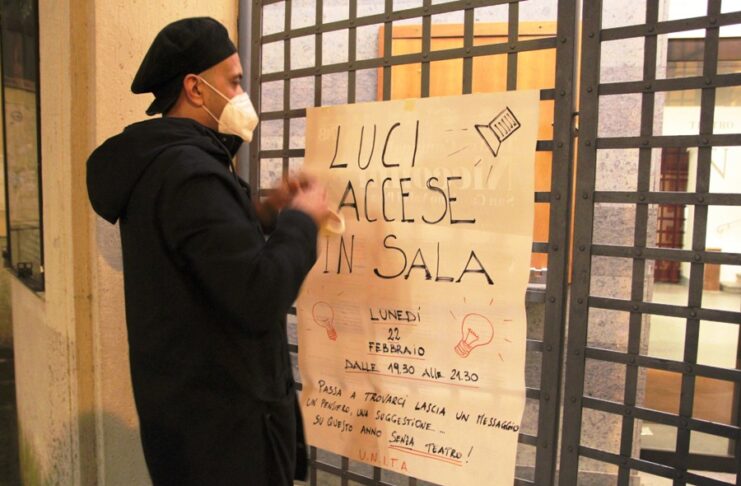 LUCI
ACCESE
IN SALA
LUNEDÍ
22
FEBBRAIO
DALLE 19.30 ALLE 21.30
PASSA A TROVARCI LASCIA UN MESSAGGIO
UN PENSIERO, UNA SUGGESTIONE...
SU QUESTO ANNO SENZA TEATRO!
U.N.I.T.A